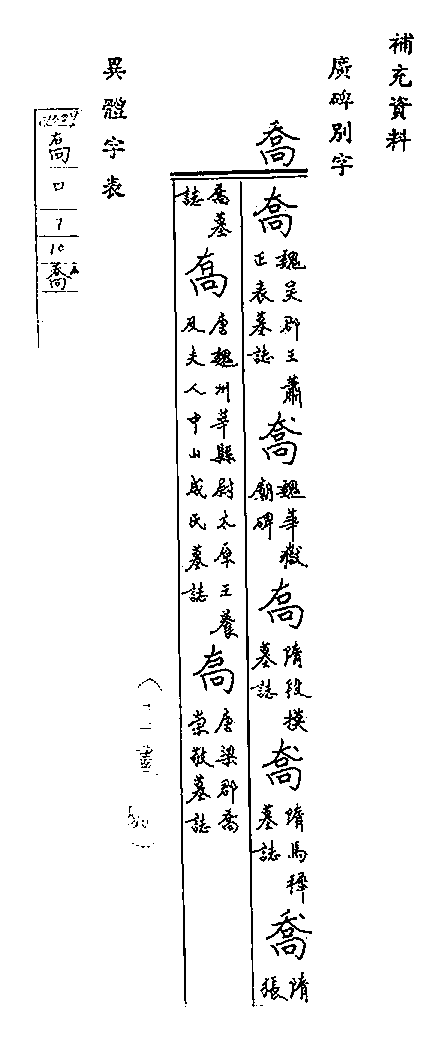 補充資料
廣碑別字
喬
喬 魏吴郡王蕭正表墓誌 喬 魏華嶽廟碑 喬 隋段模墓誌 喬 隋馬穉墓誌 喬 隋張
喬墓誌 喬 唐魏州莘縣尉太原王養及夫人中山成氏墓誌 喬 唐梁郡喬崇敬墓誌
異體字表
喬
口
7
10
喬